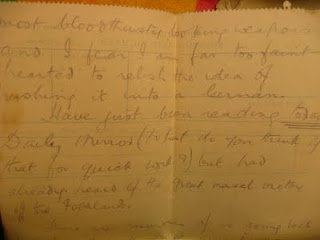 most bloodthirsty looking weapons
and I fear I am far too faint
hearted to relish the idea of
rushing it into a German.
Have just been reading today's
Daily Mirror (what do you think of
that for quick work?) but had
already heard of the great naval victory
of the Falklands.
There are rumours of us going back